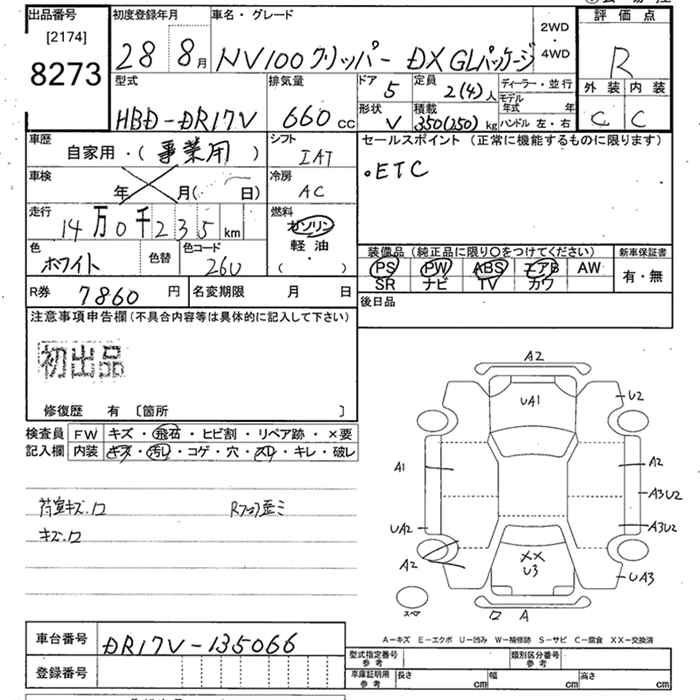 出品番号
[2174]
8273
初度登録年月
28 8月
車名・グレード
NV100クリッパー DX GLパッケージ
2WD
・
4WD
評価点
R
外装 内装
C C
型式
HBD-DR17V
排気量
660cc
ドア
5
定員
2(4)人
形状
V
積載
350(250)kg
ディーラー・並行
モデル年式 年
ハンドル 左・右
車歴
自家用・(事業用)
シフト
IAT
セールスポイント (正常に機能するものに限ります)
・ETC
車検
年 月( 日)
冷房
AC
走行
14万0千235km
燃料
ガソリン
軽油
・
( )
色
ホワイト
色替
色コード
26U
装備品(純正品に限り○をつけてください)
PS PW ABS エアB AW
SR ナビ TV カワ
新車保証書
有・無
R券
7860円
名変期限 月 日
後日品
注意事項申告欄(不具合内容等は具体的に記入して下さい)
初出品
修復歴 有 〔箇所 〕
検査員記入欄
FW キズ・飛石・ヒビ割・リペア跡・×要
内装 キズ・汚レ・コゲ・穴・スレ・キレ・破レ
荷室キズ.ロ
Rフロア歪ミ
キズ.ロ
A2
UA1
U2
A1
A2
A3U2
UA2
A3U2
A2
XX
U3
UA3
スペア
ロ A
A-キズ E-エクボ U-凹み W-補修跡 S-サビ C-腐食 XX-交換済
車台番号
DR17V-135066
登録番号
型式指定番号
参考
類別区分番号
参考
車庫証明用
参考
長さ cm
幅 cm
高さ cm